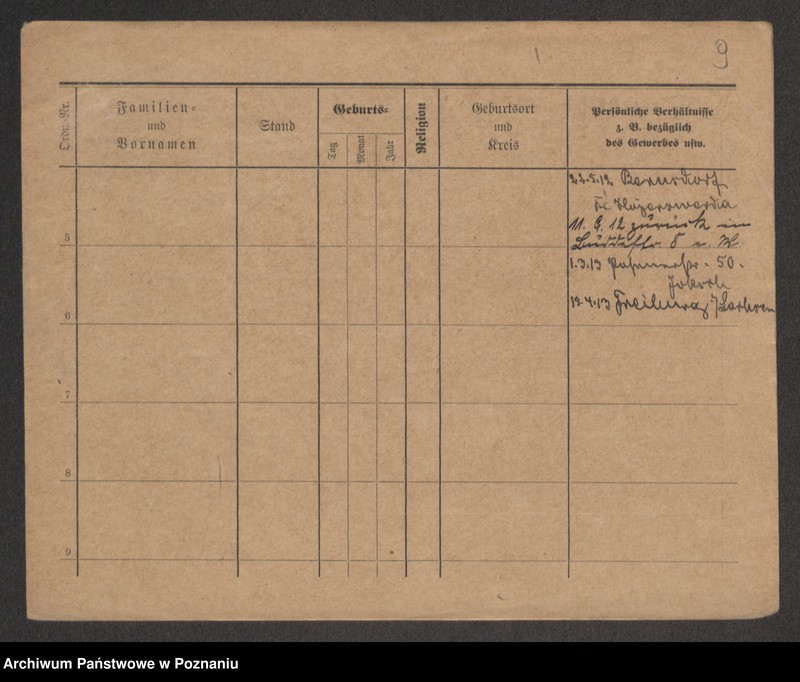 9
Ordn. Nr.
Familien-
und
Vornamen
Stand
Geburts-
Tag
Monat
Jahr
Religion
Geburtsort
und
Kreis
Persönliche Verhältnisse
z. B. bezüglich
des Gewerbes usw.
22.5.12 Bernsdorf
Hoyerswerda
11. 12 zurück
5
1.3.13 Posenerstr. 50.
6
17.4.13 Freiburg
7
8
9
Archiwum Państwowe w Poznaniu